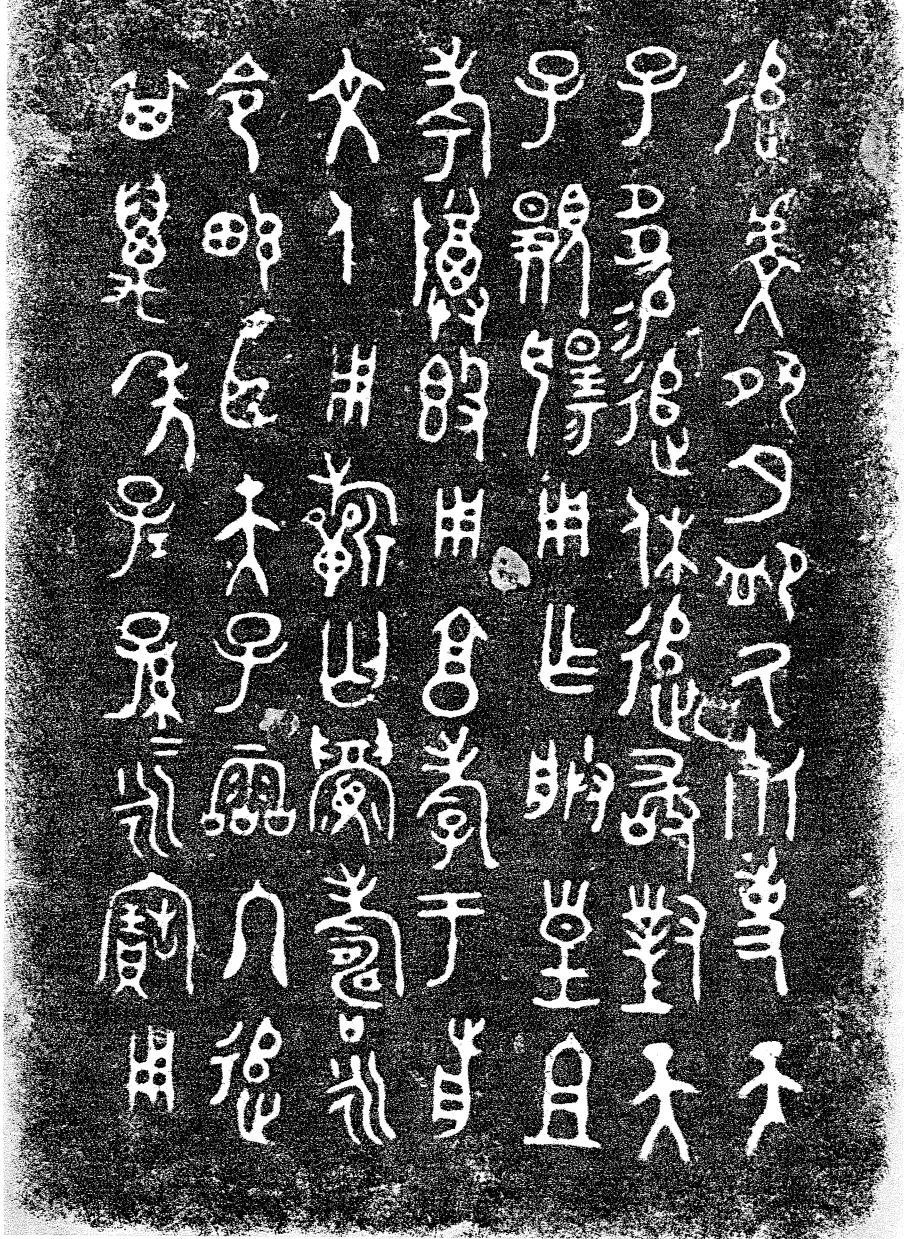 追虔夙夕卹氒死事天
子多易追休追敢對天
子顯揚用乍朕皇且
考尊簋用亯孝于前
文人用祈匄眉壽永
令畯臣天子霝冬追
其萬年子=孫=永寶用